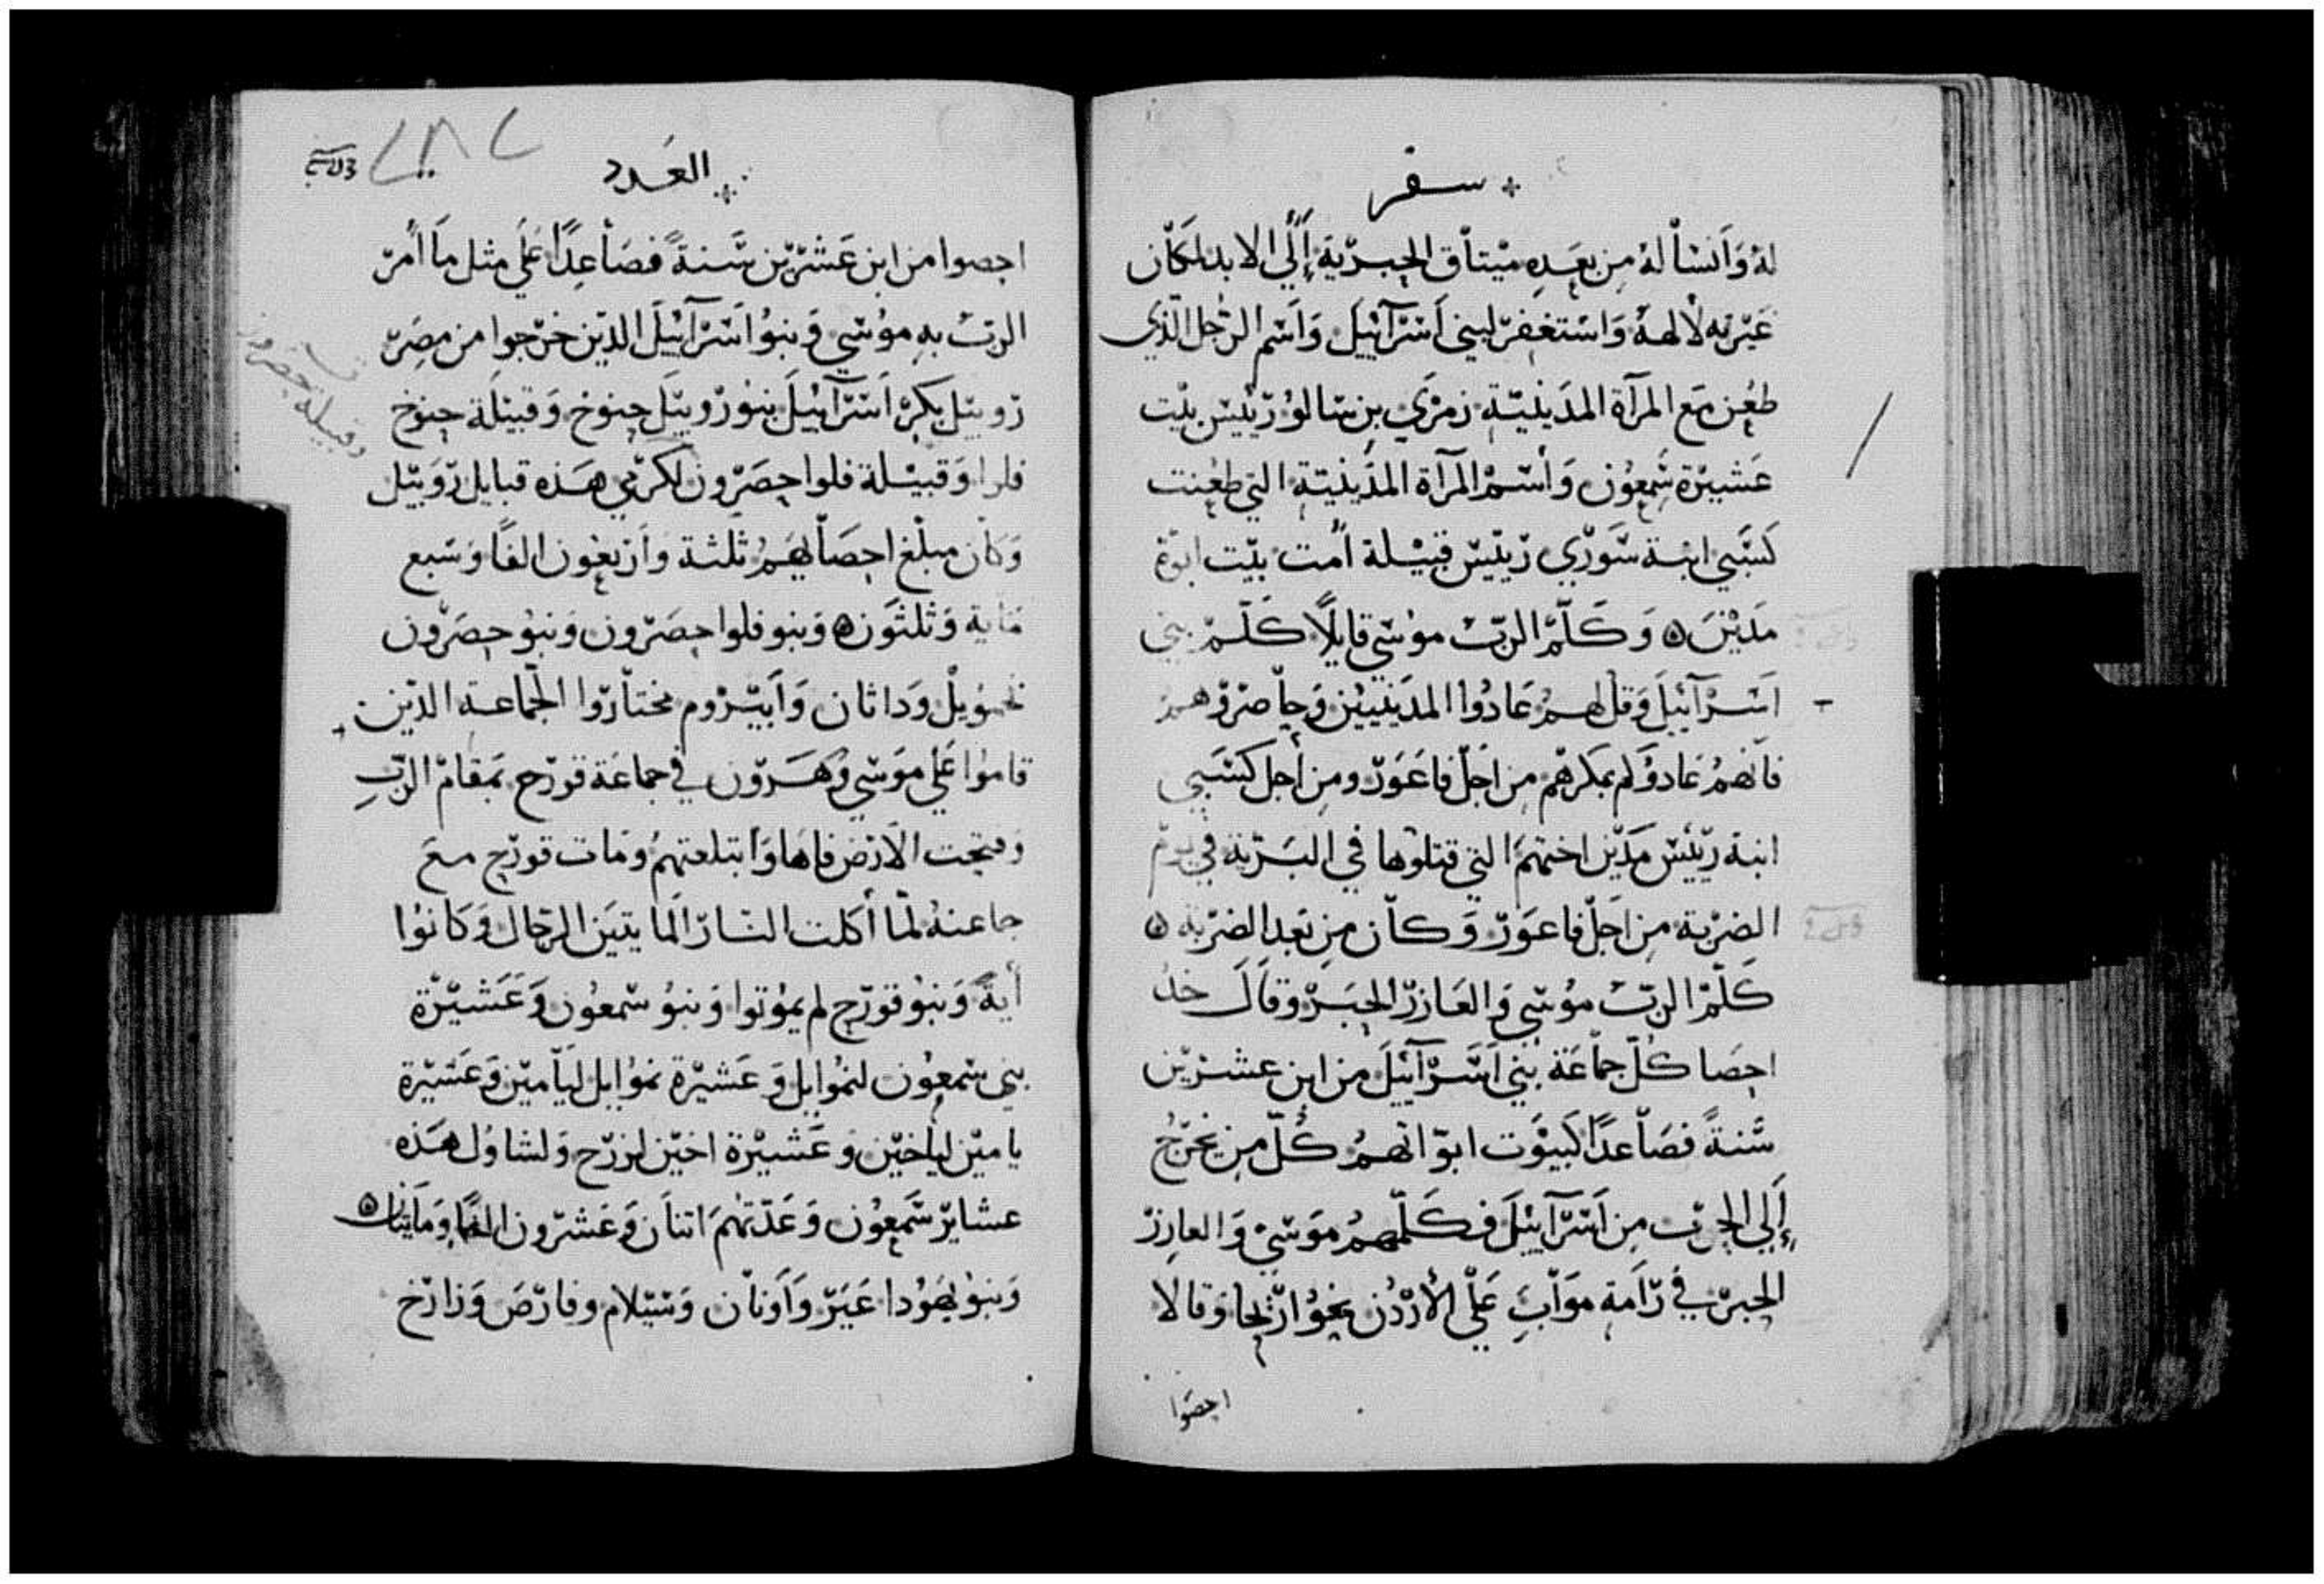 سفر
له وانسأله من بعده ميتاق الحبرية إلي الابد لمكان
غيرته لالهه واستغفر لبني اسرآييل واسم الرجل الذي
طعن مع المرآة المدينية زمري بن سالو رييس بيت
عشيرة شمعون وأسم المرآة المدينية التي طعنت
كسبي ابنة سوري رييس قبيلة أمت بيت ابوة
مدين ۞ وكلم الرب موسي قايلًا كلم بني
اسرآييل وقل لهم عادوا المدينيين وحاصروهم
فانهم عادوكم بمكرهم من اجل فاعور ومن أجل كسبي
ابنة رييس مدين اختهم التي قتلوها في البرية في يوم
الضربة من اجل فاعور وكان من بعد الضربة ۞
كلم الرب موسي والعازر الحبر وقال خذ
احصا كل جماعة بني اسرآييل من ابن عشرين
سنةً فصاعدًا كبيوت ابواتهم كل من يخرج
إلي الحرب من اسرآييل فكلمهم موسي والعازر
الحبر في رامة موآب علي الأردن نحو اريحا وقالا
احصوا
العدد
احصوا من ابن عشرين سنةً فصاعدًا علي مثل ما أمر
الرب به موسي وبنوا اسرآييل الذين خرجوا من مصر
روبيل بكر اسرآييل بنو روبيل حنوخ وقبيلة حنوخ
فلوا وقبيلة فلوا حصرون لكرمي هذه قبايل روبيل
وكان مبلغ احصآيهم ثلثة واربعون الفًا وسبع
ماية وثلثون ۞ وبنو فلوا حصرون وبنو حصرون
نمويل وداثان وابيروم مختاروا الجماعة الذين
قاموا علي موسي وهرون في جماعة قورح بمقام الرب
وفتحت الارض فاها وابتلعتهم ومات قورح مع
جماعته لما أكلت النار المايتين الرجال وكانوا
أية وبنو قورح لم يموتوا وبنو سمعون وعشيرة
بني سمعون لنموايل وعشيرة نموايل ليامين وعشيرة
يامين لياخين وعشيرة اخين لزرح ولشاول هذه
عشاير سمعون وعدتهم اتنان وعشرون الفًا ومايتان ۞
وبنو يهودا عير واونان وسيلام وفارص وزارخ
وقبيلة حصرون